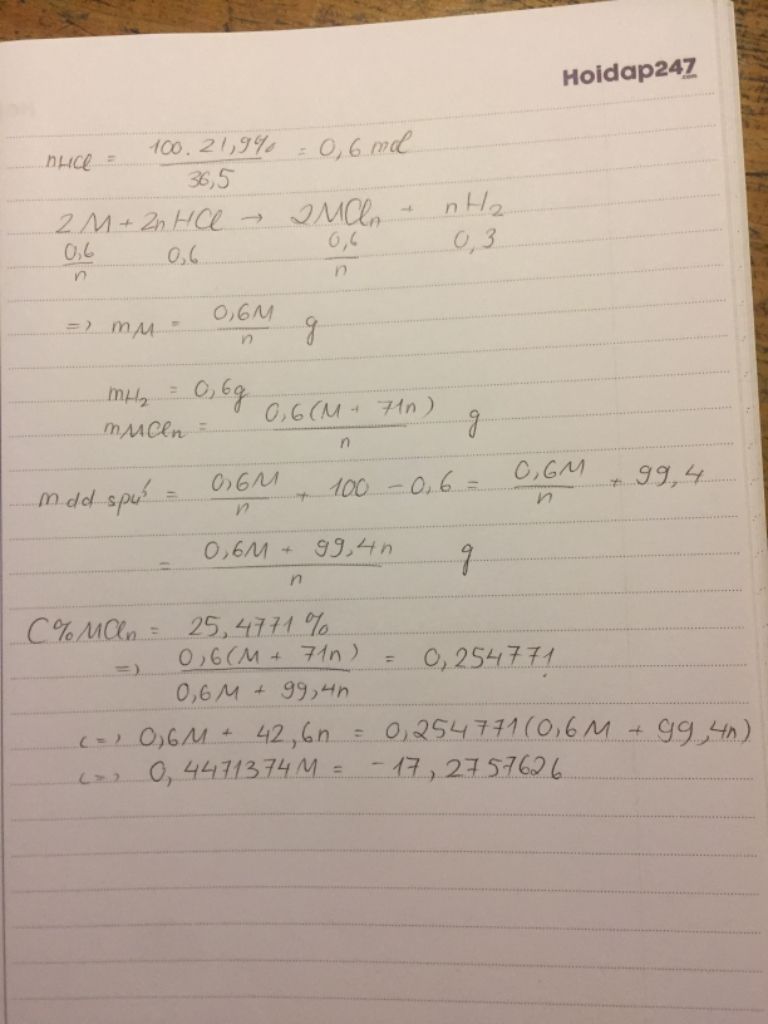 Hoidap247
.com
nHCl = 100.21,9% / 36,5 = 0,6 mol
2M + 2nHCl → 2MCln + nH2
0,6/n 0,6 0,6/n 0,3
=> mM = 0,6M/n g
mH2 = 0,6g
mMCln = 0,6(M + 71n)/n g
mdd spứ = 0,6M/n + 100 - 0,6 = 0,6M/n + 99,4
= (0,6M + 99,4n)/n g
C%MCln = 25,4771%
=> 0,6(M + 71n) / (0,6M + 99,4n) = 0,254771
<=> 0,6M + 42,6n = 0,254771(0,6M + 99,4n)
<=> 0,4471374M = -17,2757626